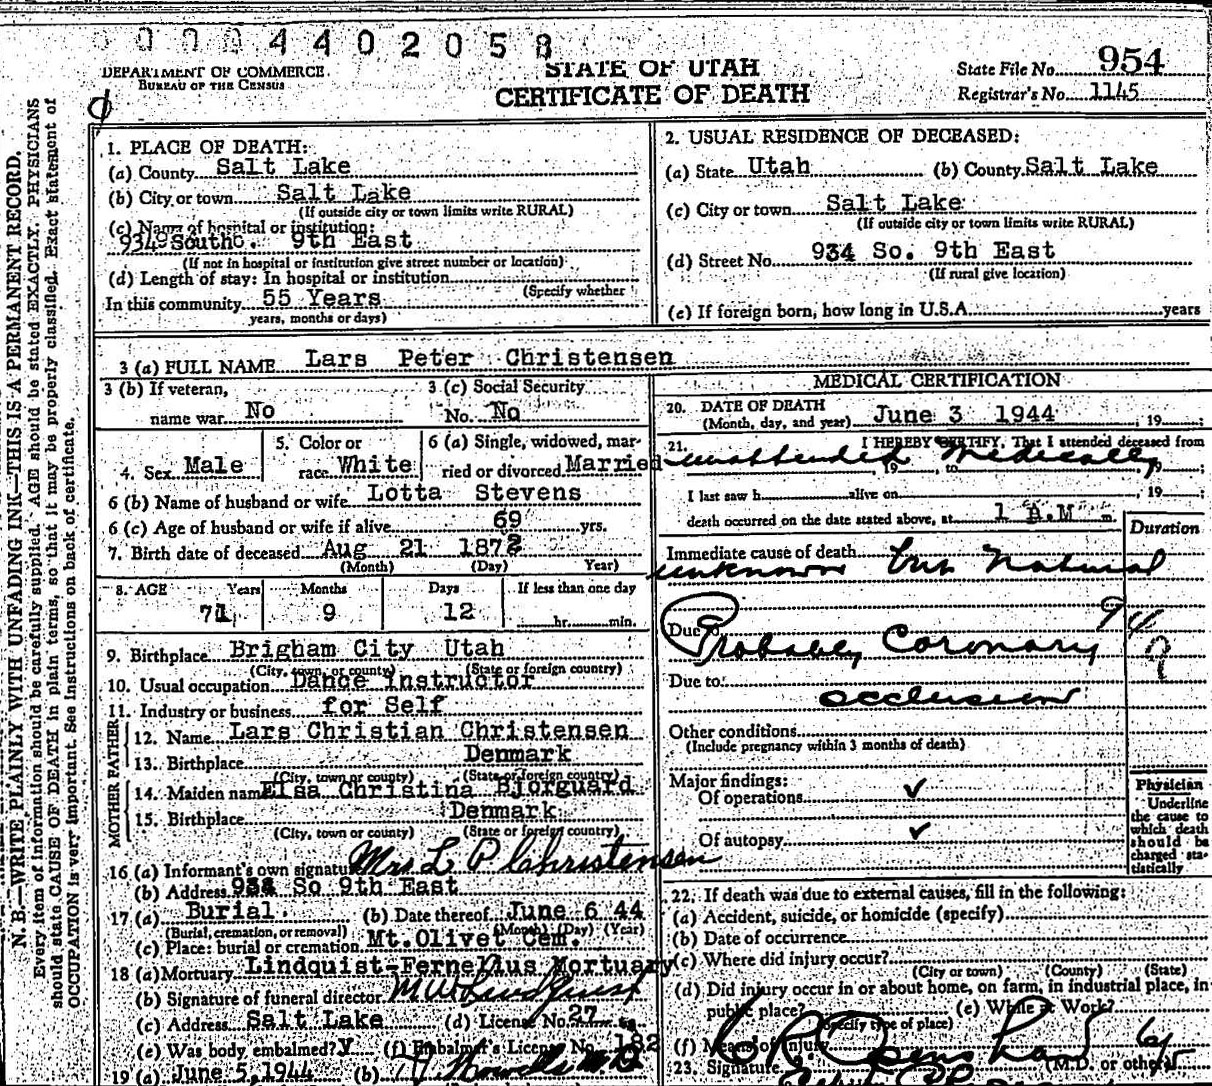 0 0 0 4 4 0 2 0 5 8
DEPARTMENT OF COMMERCE
BUREAU OF THE CENSUS
STATE OF UTAH
CERTIFICATE OF DEATH
State File No. 954
Registrar's No. 1145
N. B.—WRITE PLAINLY WITH UNFADING INK—THIS IS A PERMANENT RECORD.
Every item of information should be carefully supplied. AGE should be stated EXACTLY. PHYSICIANS
should state CAUSE OF DEATH in plain terms, so that it may be properly classified. Exact statement of
OCCUPATION is very important. See instructions on back of certificate.
1. PLACE OF DEATH:
(a) County Salt Lake
(b) City or town Salt Lake
(If outside city or town limits write RURAL)
(c) Name of hospital or institution:
934 South 9th East
(If not in hospital or institution give street number or location)
(d) Length of stay: In hospital or institution
(Specify whether
In this community 55 Years
years, months or days)
2. USUAL RESIDENCE OF DECEASED:
(a) State Utah (b) County Salt Lake
(c) City or town Salt Lake
(If outside city or town limits write RURAL)
(d) Street No. 934 So. 9th East
(If rural give location)
(e) If foreign born, how long in U.S.A. years
3 (a) FULL NAME Lars Peter Christensen
3 (b) If veteran,
name war No
3 (c) Social Security
No. No
4. Sex Male
5. Color or
race White
6 (a) Single, widowed, mar-
ried or divorced Married
6 (b) Name of husband or wife Lotta Stevens
6 (c) Age of husband or wife if alive 69 yrs.
7. Birth date of deceased Aug 21 1872
(Month) (Day) Year)
8. AGE Years Months Days If less than one day
71 9 12 hr. min.
9. Birthplace Brigham City Utah
(City, town, or county) (State or foreign country)
10. Usual occupation Dance Instructor
11. Industry or business for Self
FATHER
12. Name Lars Christian Christensen
13. Birthplace Denmark
(City, town or county) (State or foreign country)
MOTHER
14. Maiden name Elsa Christina Bjorguard
15. Birthplace Denmark
(City, town or county) (State or foreign country)
16 (a) Informant's own signature Mrs L P Christensen
(b) Address 934 So 9th East
17 (a) Burial. (b) Date thereof June 6 44
(Burial, cremation, or removal) (Month) (Day) (Year)
(c) Place: burial or cremation Mt. Olivet Cem.
18 (a) Mortuary Lindquist-Fernelius Mortuary
(b) Signature of funeral director M W Lindquist
(c) Address Salt Lake (d) License No. 27
(e) Was body embalmed? y (f) Embalmer's License No. 182
19 (a) June 5, 1944 (b)
MEDICAL CERTIFICATION
20. DATE OF DEATH
(Month, day, and year) June 3 1944, 19
21. I HEREBY CERTIFY, That I attended deceased from
unattended medically
19, to, 19;
I last saw h alive on, 19;
death occurred on the date stated above, at 1 A.M m.
Duration
Immediate cause of death
unknown but natural
Due to Probably Coronary 94
Due to: occlusion
?
Other conditions
(Include pregnancy within 3 months of death)
Major findings:
Of operations ✓
Of autopsy ✓
Physician
Underline
the cause to
which death
should be
charged sta-
tistically
22. If death was due to external causes, fill in the following:
(a) Accident, suicide, or homicide (specify)
(b) Date of occurrence
(c) Where did injury occur?
(City or town) (County) (State)
(d) Did injury occur in or about home, on farm, in industrial place, in
public place? (e) While at Work?
(Specify type of place)
(f) Means of injury
23. Signature (M.D. or other)